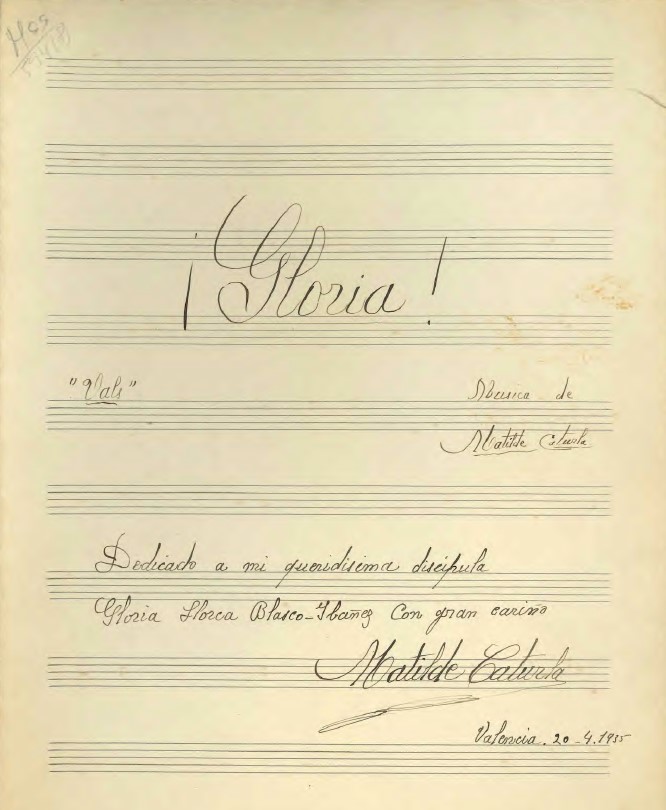 Hos
¡Gloria!
"Vals"
Musica de
Matilde Caturla
Dedicado a mi queridisima discipula
Gloria Llorca Blasco-Ibañez Con gran cariño
Matilde Caturla
Valencia. 20-4.1935